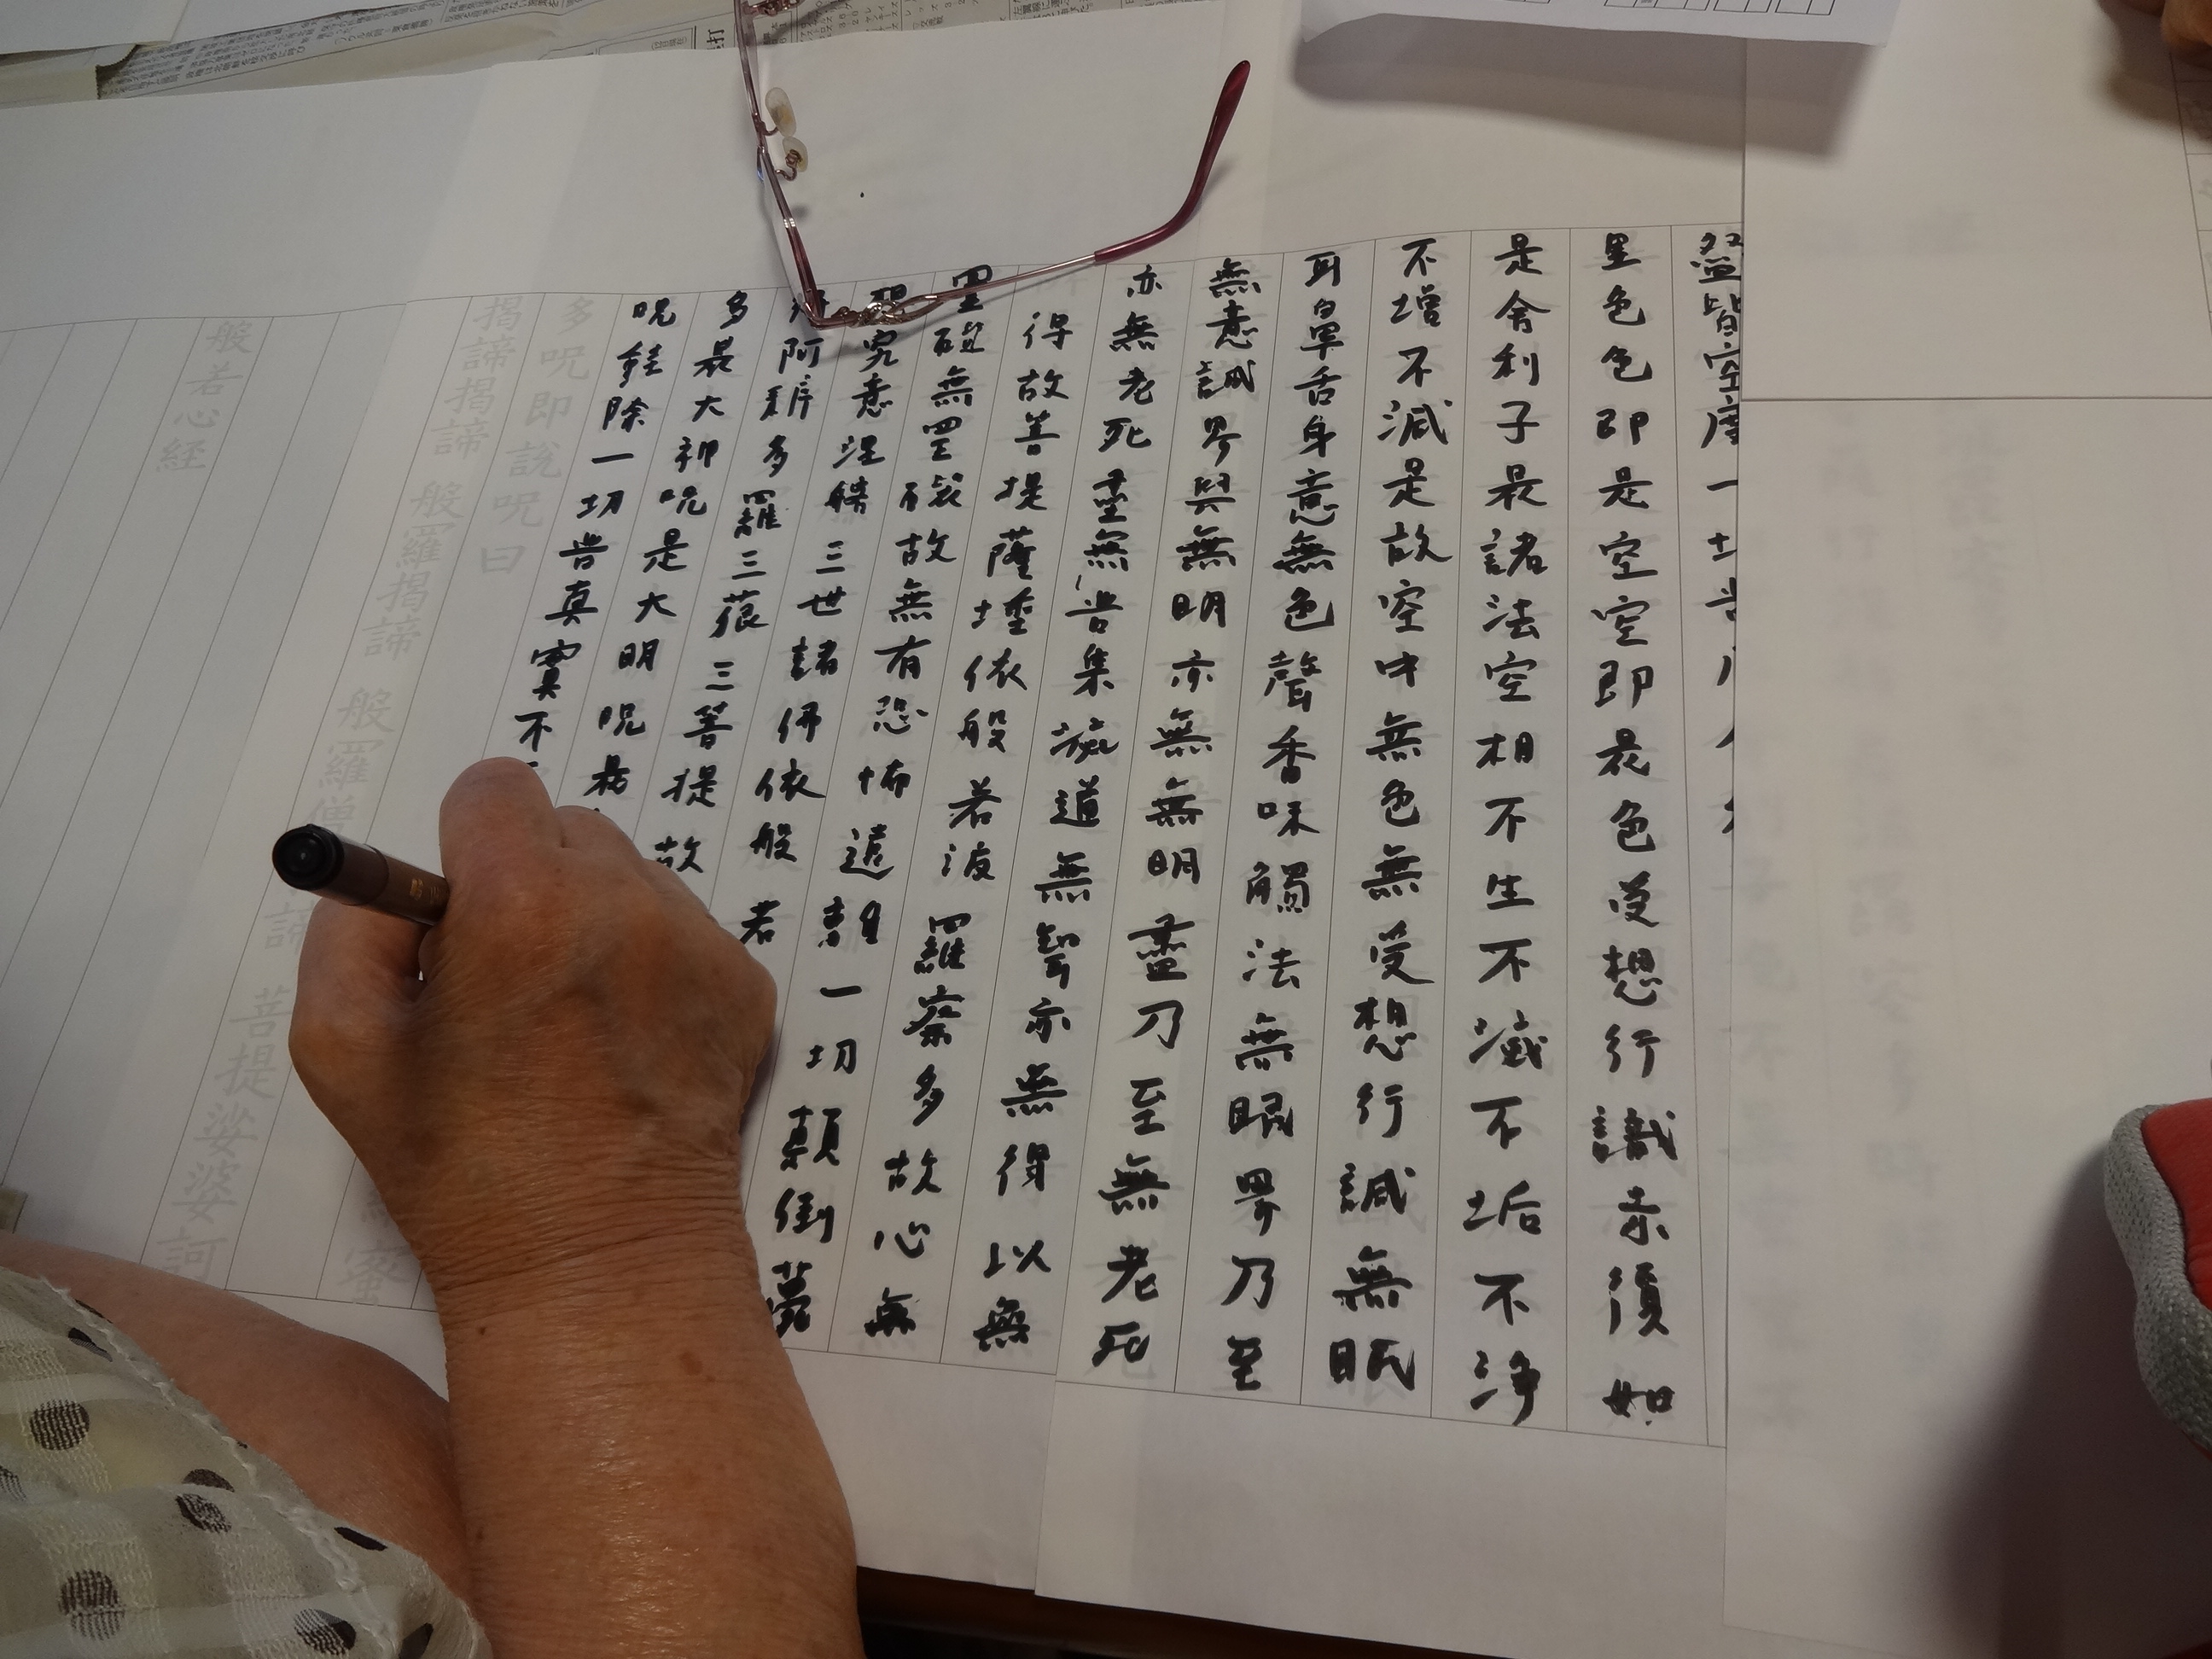 蘊皆空度一切苦
異色色即是空空即是色受想行識亦復如
是舍利子是諸法空相不生不滅不垢不淨
不增不減是故空中無色無受想行識無眼
耳鼻舌身意無色聲香味觸法無眼界乃至
無意識界無無明亦無無明盡乃至無老死
亦無老死盡無苦集滅道無智亦無得以無
得故菩提薩埵依般若波羅蜜多故心無
罣礙無罣礙故無有恐怖遠離一切顛倒夢
究竟涅槃三世諸佛依般若
阿耨多羅三藐三菩提故
多是大神呪是大明呪是
呪能除一切苦真實不
蜜
多呪即說呪曰
揭諦揭諦 般羅揭諦 般羅僧
諦 菩提娑婆訶
般若心經